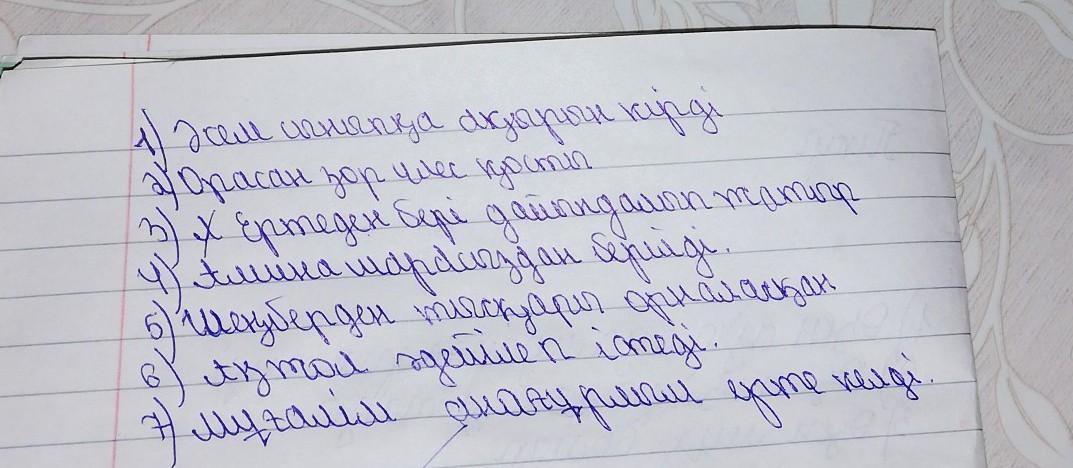 1) Әсем сыныпқа ақырын кірді
2) Орасан зор үлес қостың
3) Х Ертеден бері дайындалып жатыр
4) Алина шарасыздан берілді.
5) Шеңберден тысқары орналасқан
6) Ақтал әдейілеп істеді.
7) Мұғалім анағұрлым ерте келді.